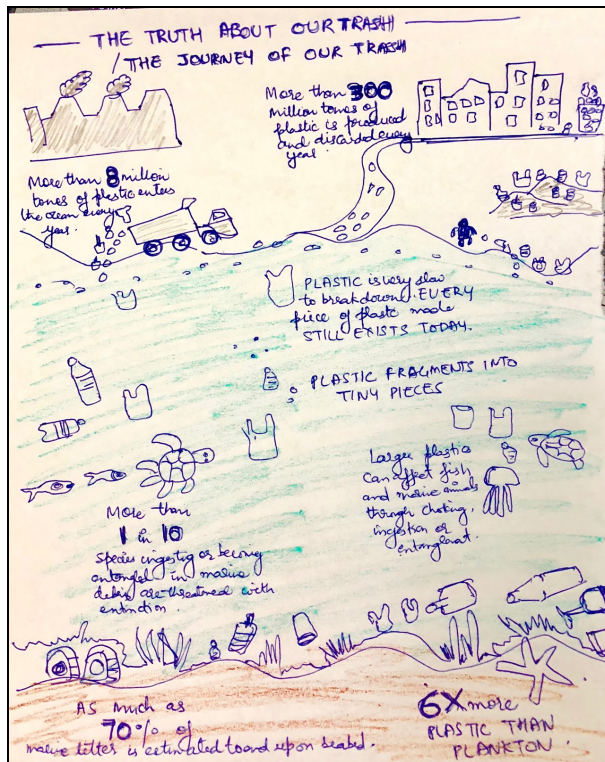 THE TRUTH ABOUT OUR TRASH
/THE JOURNEY OF OUR TRASH
More than 300
million tones of
plastic is produced
and discarded every
year.
More than 8 million
tones of plastic enters
the ocean every
year.
PLASTIC is very slow
to breakdown. EVERY
piece of plastic made
STILL EXISTS TODAY.
PLASTIC FRAGMENTS INTO
TINY PIECES
Larger plastic
can affect fish
and marine animals
through choking,
ingestion or
More than
1 in 10
Species ingesting or becoming
in marine
debris are threatned with
extinction.
AS much as
70% of
marine litter is estimated to end upon seabed.
6X more
PLASTIC THAN
PLANKTON